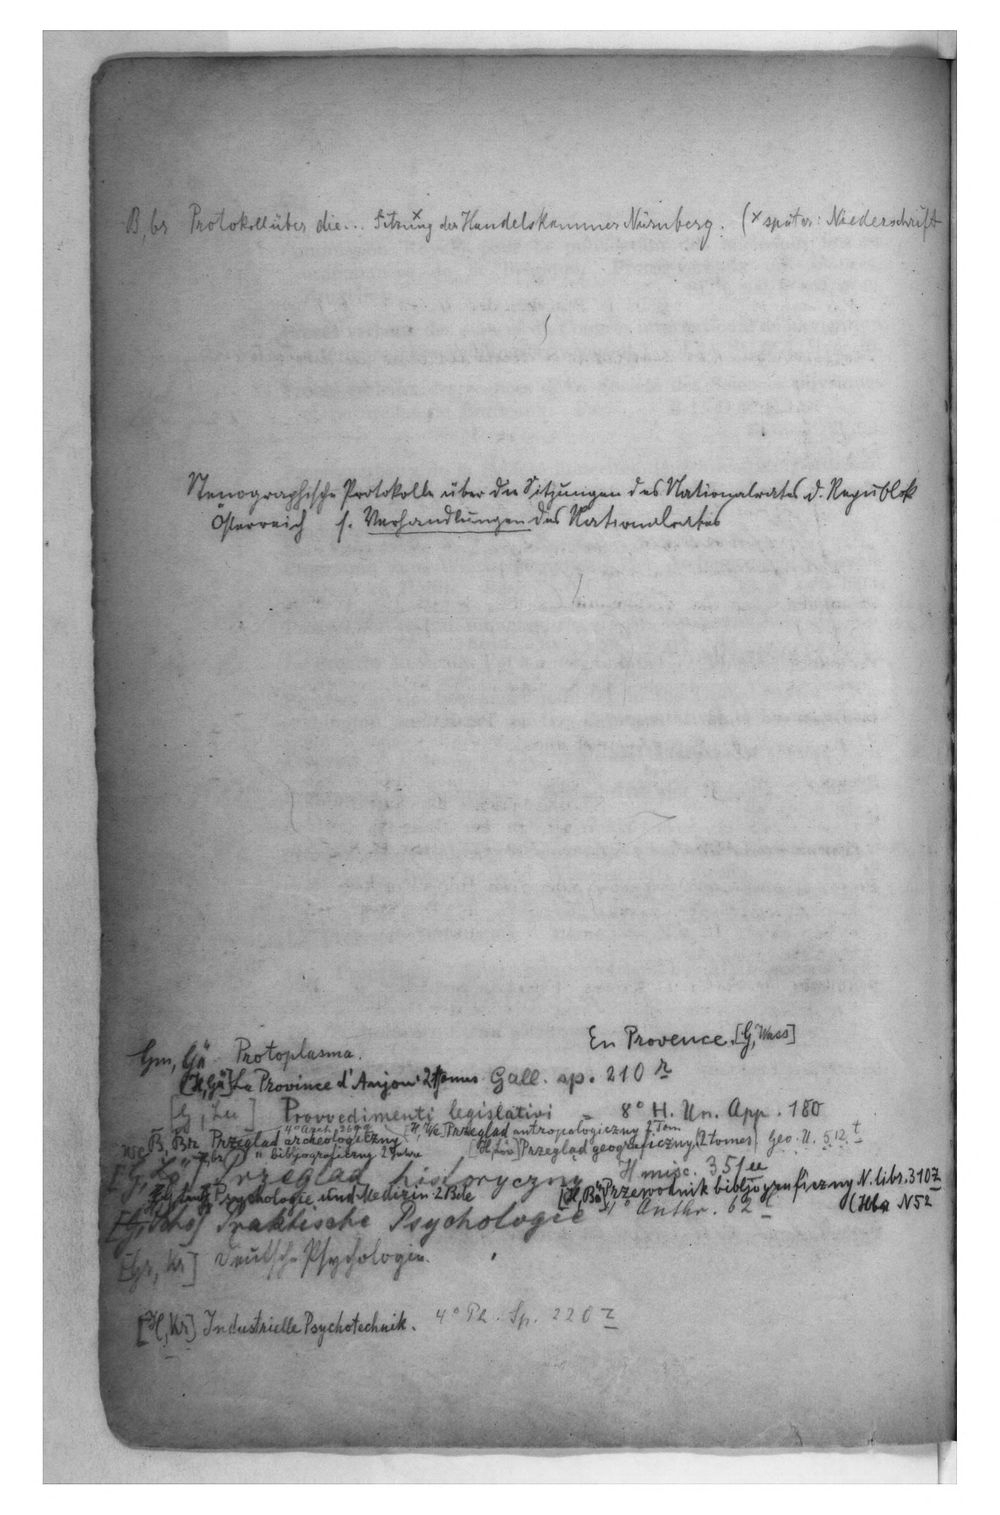 B, br Protokoll über die... Sitzung ˣ der Handelskammer Nürnberg. (ˣ später: Niederschrift
Stenographische Protokolle über die Sitzungen des Nationalrates d. Republik
Österreich s. Verhandlungen des Nationalrates
En Provence. [G, Wass]
Gm, Gä Protoplasma.
[H, Gä] La Province d'Anjou. 2 Tomus Gall. sp. 210 r
[G, Lu] Provvedimenti legislativi = 8° H. Un. App. 180
B, Br Przegląd archeologiczny
Przegląd antropologiczny 2. Tom
" bibljograficzny
Przegląd geograficzny, (2 tomes) Geo. U. 512 t
Przegląd historyczny H misc. 351
Psychologie und Medizin 2 Bde
[H, Bä] Przewodnik bibljograficzny N. libr. 310 z
(Hba N52
Praktische Psychologie 4° Anthr. 62
[Gr, Kr] Deutsche Psychologie.
[H, Kr] Industrielle Psychotechnik. 4° Ph. Sp. 220 z